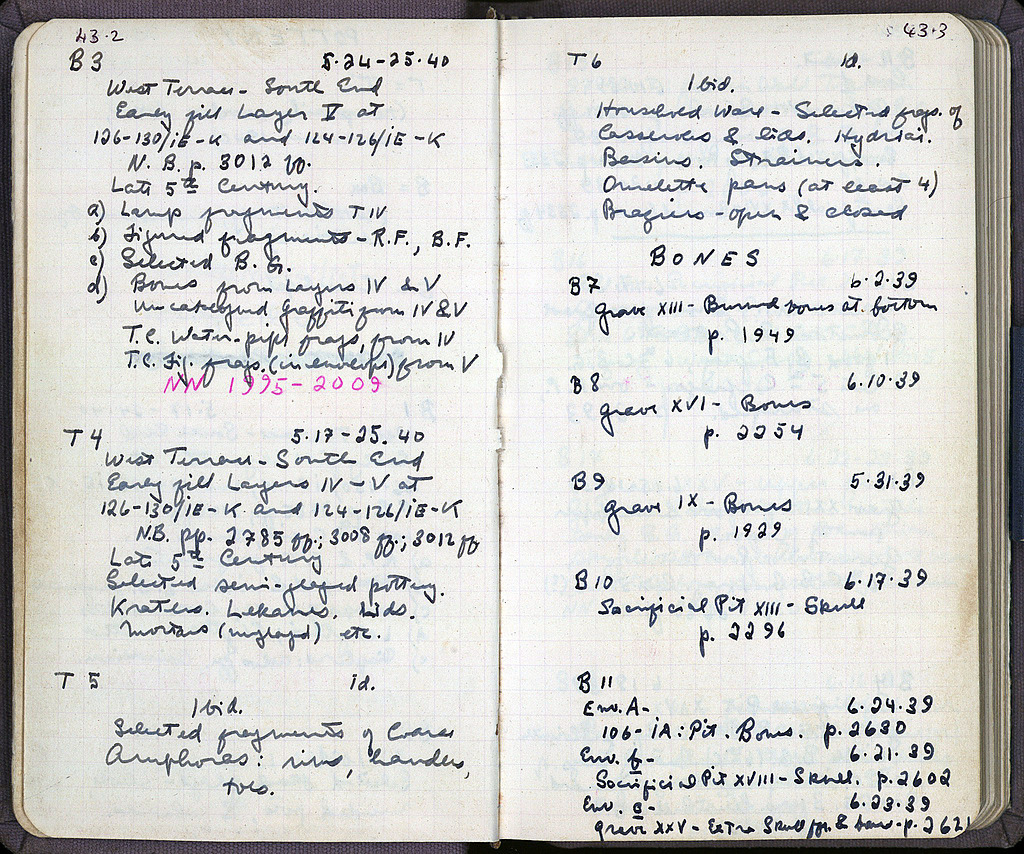 43·2
B3 5·24-25·40
West Terrace - South End
Early fill Layer V at
126-130/IE-K and 124-126/IE-K
N.B. p. 3012 ff.
Late 5th Century.
a) Lamp fragments T IV
b) Figured fragments - R.F., B.F.
c) Selected B.G.
d) Bones from Layers IV & V
Uncatalogued Graffiti from IV & V
T.C. Water-pipe frags, from IV
T.C. Fig. frags. (in envelope) from V
NN 1995-2009
T4 5·17-25·40
West Terrace - South End
Early fill Layers IV - V at
126-130/IE-K and 124-126/IE-K
N.B. pp. 2785 ff.; 3008 ff.; 3012 ff
Late 5th Century
Selected semi-glazed pottery.
Kraters. Lekanes. Lids.
Mortars (unglazed) etc.
T 5 id.
Ibid.
Selected fragments of Coarse
Amphoras: rims, handles,
toes.
43·3
T6 id.
Ibid.
Household Ware - Selected frags. of
Casseroles & lids. Hydriai.
Basins. Strainers.
Omelette pans (at least 4)
Braziers - open & closed
BONES
B7 6·2·39
Grave XIII - Burned bones at bottom
p. 1949
B8 6·10·39
Grave XVI - Bones
p. 2254
B9 5·31·39
Grave IX - Bones
p. 1929
B10 6·17·39
Sacrificial Pit XIII - Skull
p. 2296
B11
Env. A - 6·24·39
106-IA: Pit. Bones. p. 2630
Env. b - 6·21·39
Sacrificial Pit XVIII - Skull. p. 2602
Env. c - 6·23·39
Grave XXV - Extra Skull & p. 2621